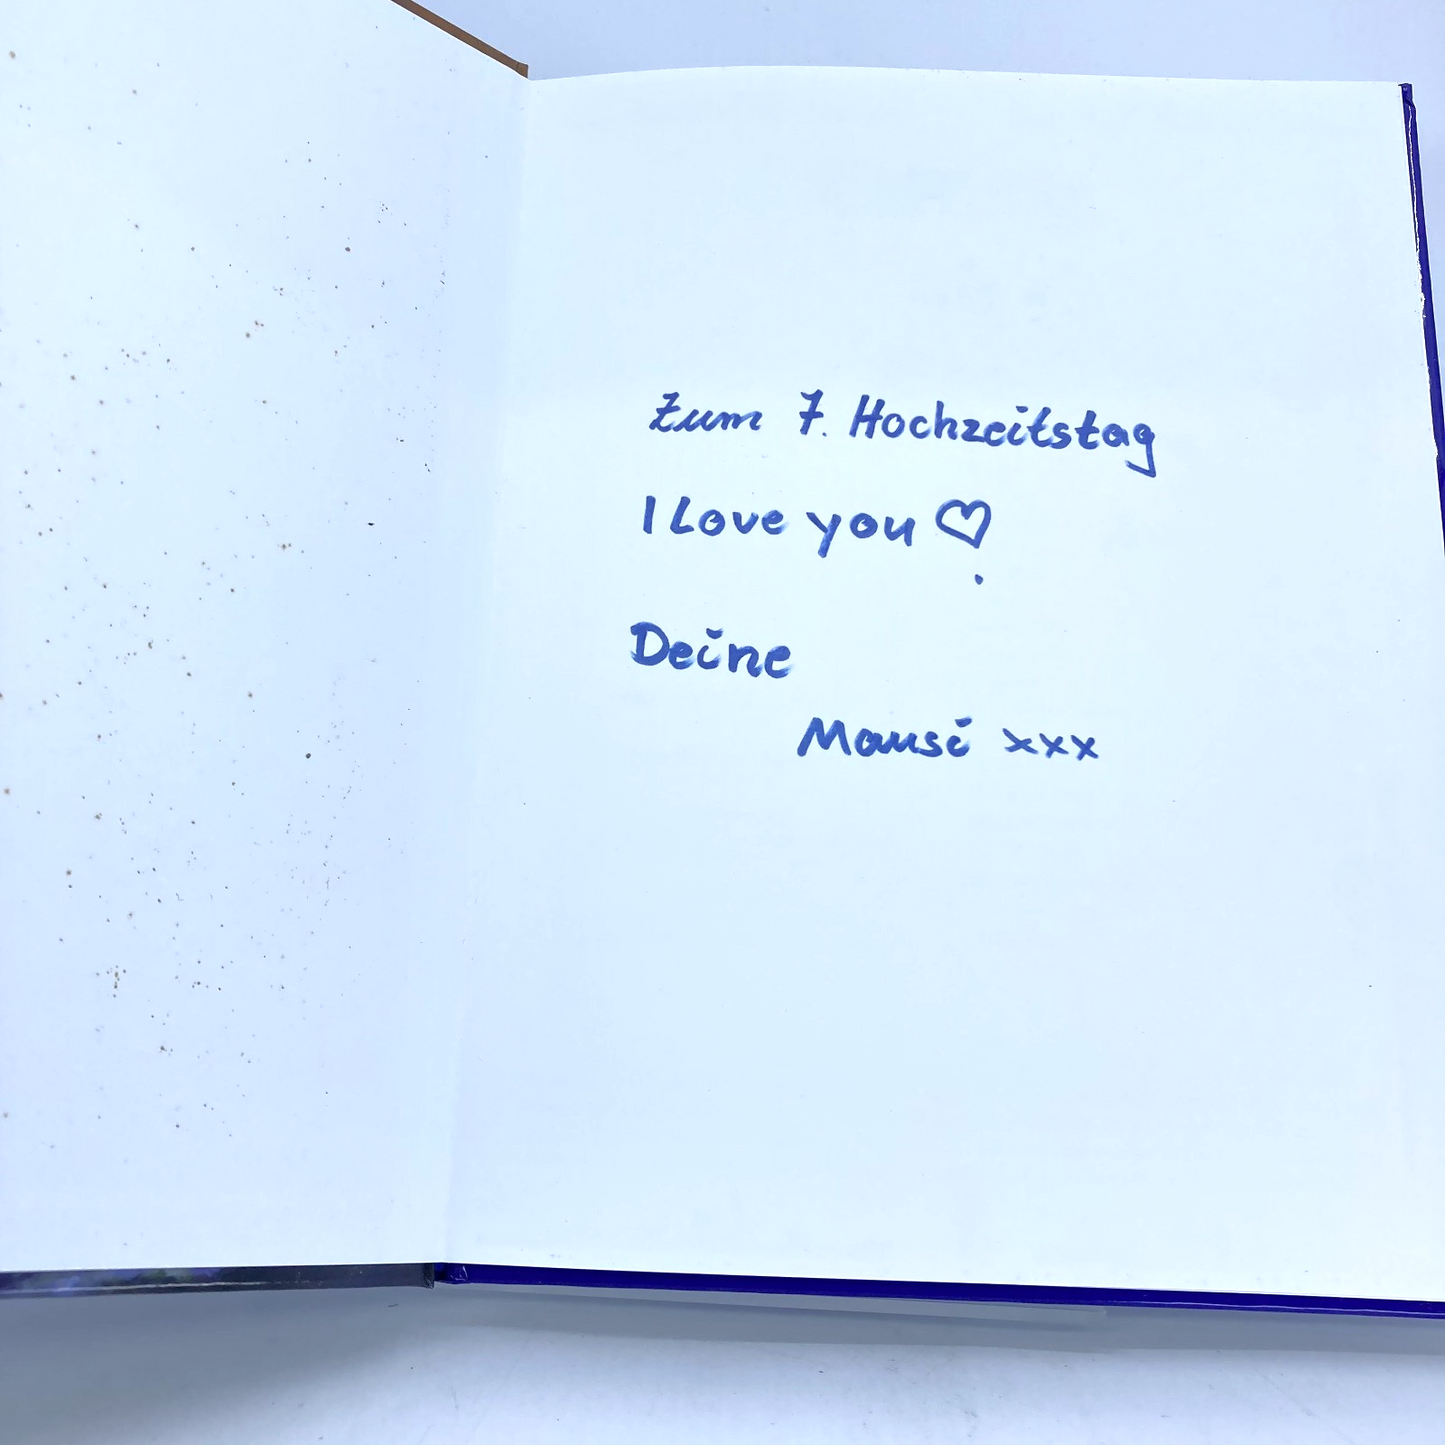 Zum 7. Hochzeitstag
I Love you ♡
Deine
Mausi xxx